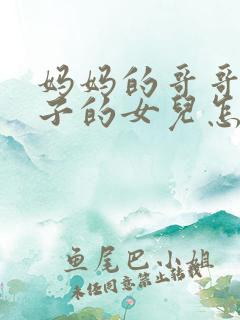 妈妈的哥哥
子的女兒怎
鱼尾巴小姐
未经同意禁止转载